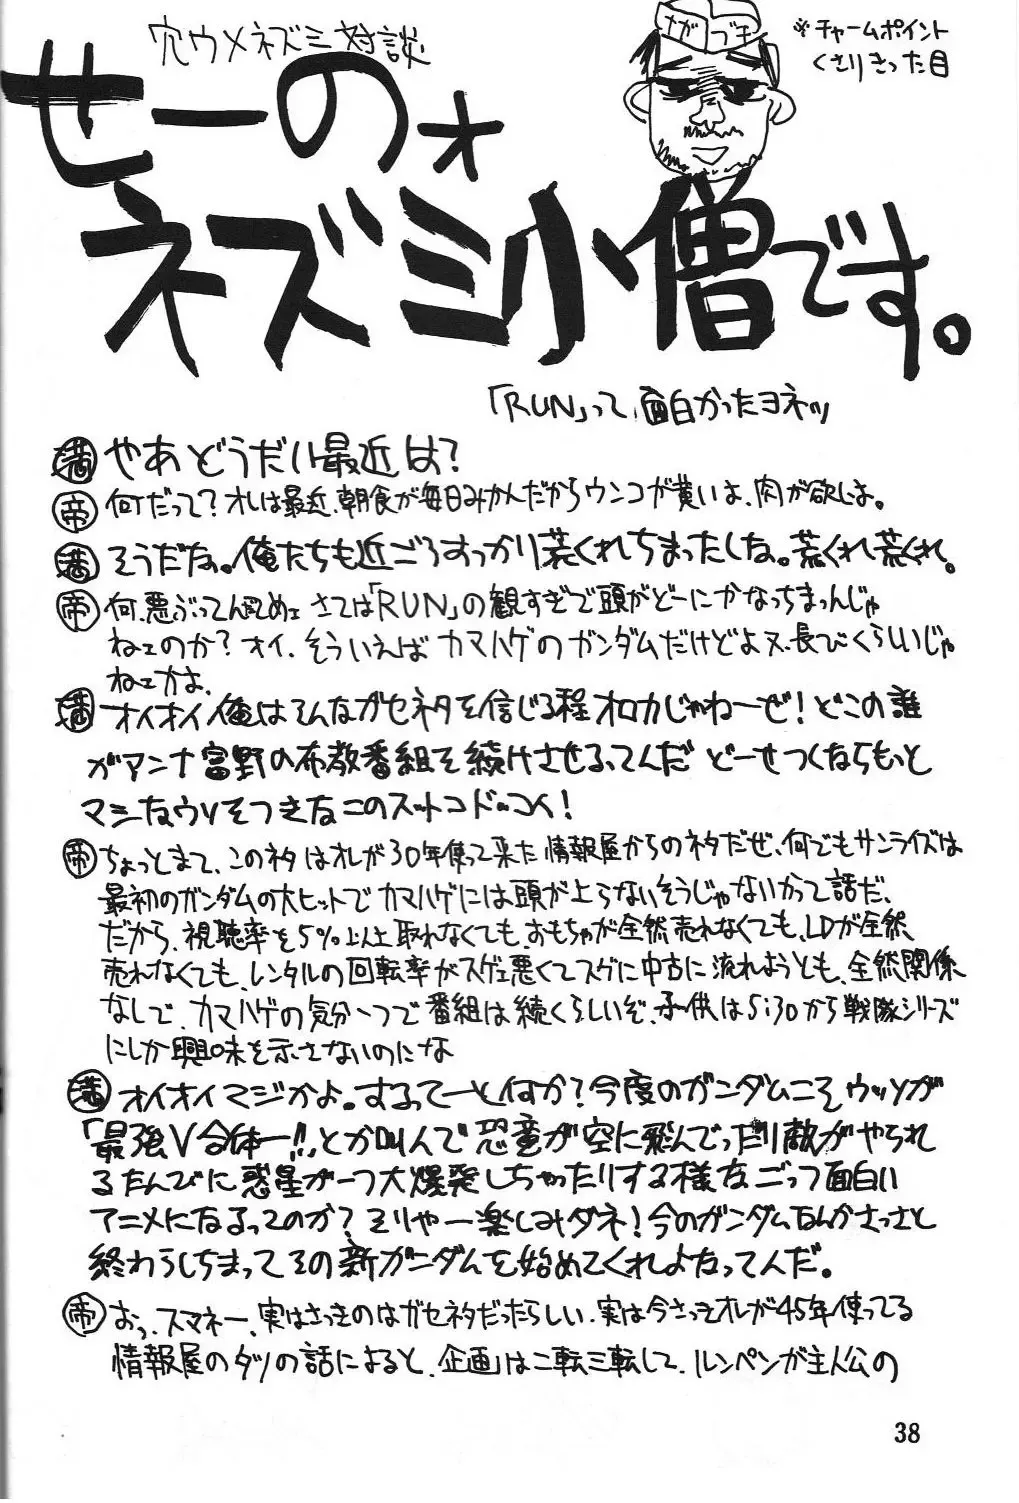 穴ウメネズミ対談
ながブチ
※チャームポイント
くさりきった目
せーのォ
ネズミ小僧です。
「RUN」って、面白かったヨネッ
満 やあどうだい最近は?
帝 何だって?オレは最近、朝食が毎日みかんだからウンコが黄いよ、肉が欲しいよ。
満 そうだな。俺たちも近ごろすっかり荒くれちまったしな。荒くれ荒くれ。
帝 何、悪ぶってんだめェ さては「RUN」の観すぎで頭がどーにかなっちまったんじゃ
ねェのか?オイ、そういえばカマハゲのガンダムだけどよ又、長びくらしいじゃ
ねェかよ、
満 オイオイ俺はそんなガセネタを信じる程オロカじゃねーぜ!どこの誰
がアンナ富野の布教番組を続けさせるってんだ どーせつくならもっと
マシなウソをつきなこのスットコドッコイ!
帝 ちょっとまて、このネタはオレが30年使って来た情報屋からのネタだぜ、何でもサンライズは
最初のガンダムの大ヒットでカマハゲには頭が上らないそうじゃないかって話だ、
だから、視聴率を5%以上取れなくても、おもちゃが全然売れなくても、LDが全然
売れなくても、レンタルの回転率がスゲェ悪くてスグに中古に流れようとも、全然関係
なしで、カマハゲの気分一つで番組は続くらしいぞ、子供は5:30から戦隊シリーズ
にしか興味を示さないのにな
満 オイオイマジかよ。するってーと何か?今度のガンダムこそウッソが
「最強V合体ー!!」とか叫んで恐竜が空に飛んでったり敵がやられ
るたんびに惑星が一つ大爆発しちゃったりする様なごっつ面白い
アニメになるってのか?そりゃー楽しみダネ!今のガンダムなんかさっさと
終わらしちまってその新ガンダムを始めてくれよなってんだ。
帝 おっ、スマネー、実はさっきのはガセネタだったらしい、実は今さっきオレが45年使ってる
情報屋のダツの話によると、企画は二転三転して、ルンペンが主人公の
38